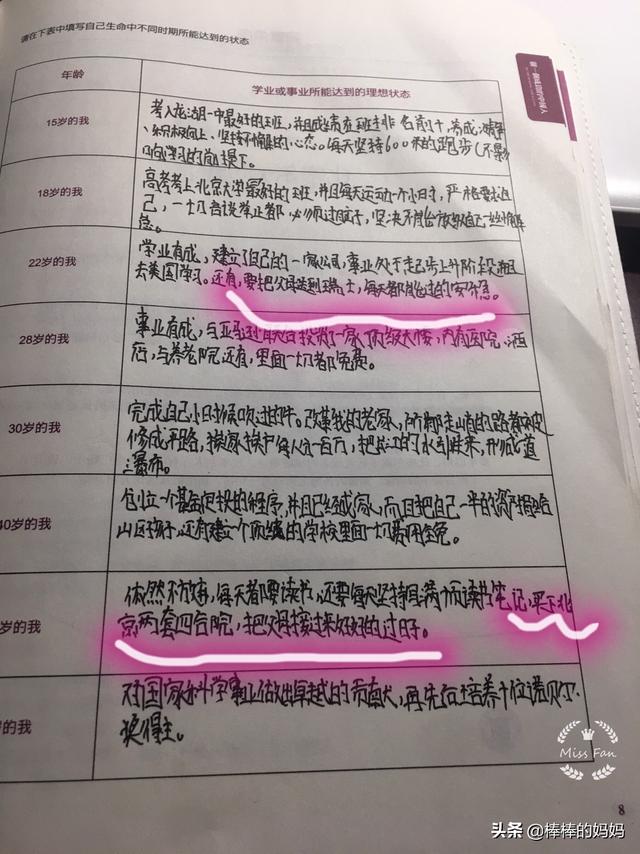 请在下表中填写自己生命中不同时期所能达到的状态
年龄
学业或事业所能达到的理想状态
15岁的我
考入龙湖一中最好的班,并且成绩在班进前十,养成
积极向上、坚持不懈的心态。每天坚持600米的跑步(不影
响学习的前提下。
18岁的我
高考考上北京大学最好的班,并且每天运动一个小时,严格要求自
己,一切言谈举止都必须过脑子,坚决不能放纵自己一丝懈
怠。
22岁的我
学业有成,建立了自己的一家公司,事业处于起步上升阶段,
去美国学习。还有,要把父母送到瑞士,每天都能过的安
28岁的我
事业有成,与亚马逊联合投资了一家顶级大楼,内有医院、酒
店,与养老院还有,里面一切都免费。
30岁的我
完成自己小时候吹过的牛。改革我的老家,所有的路都
修成平路,挨家挨户每人分一百万,把长江的水引进来,形成一道
瀑布。
40岁的我
创立一个的程序,并且已经成家,而且把自己一半的资产捐给
山区孩子,还有建立一个顶级的学校里面一切费用全免。
岁的我
依然不放弃,每天都要读书,还要每天坚持写满十面读书笔记,买下北
京两套四合院,把父母接过来好好的过日子。
岁的我
对国家和科学事业做出卓越的贡献,再先后培养十位诺贝尔
奖得主。
Miss Fan
8
头条 @棒棒的妈妈